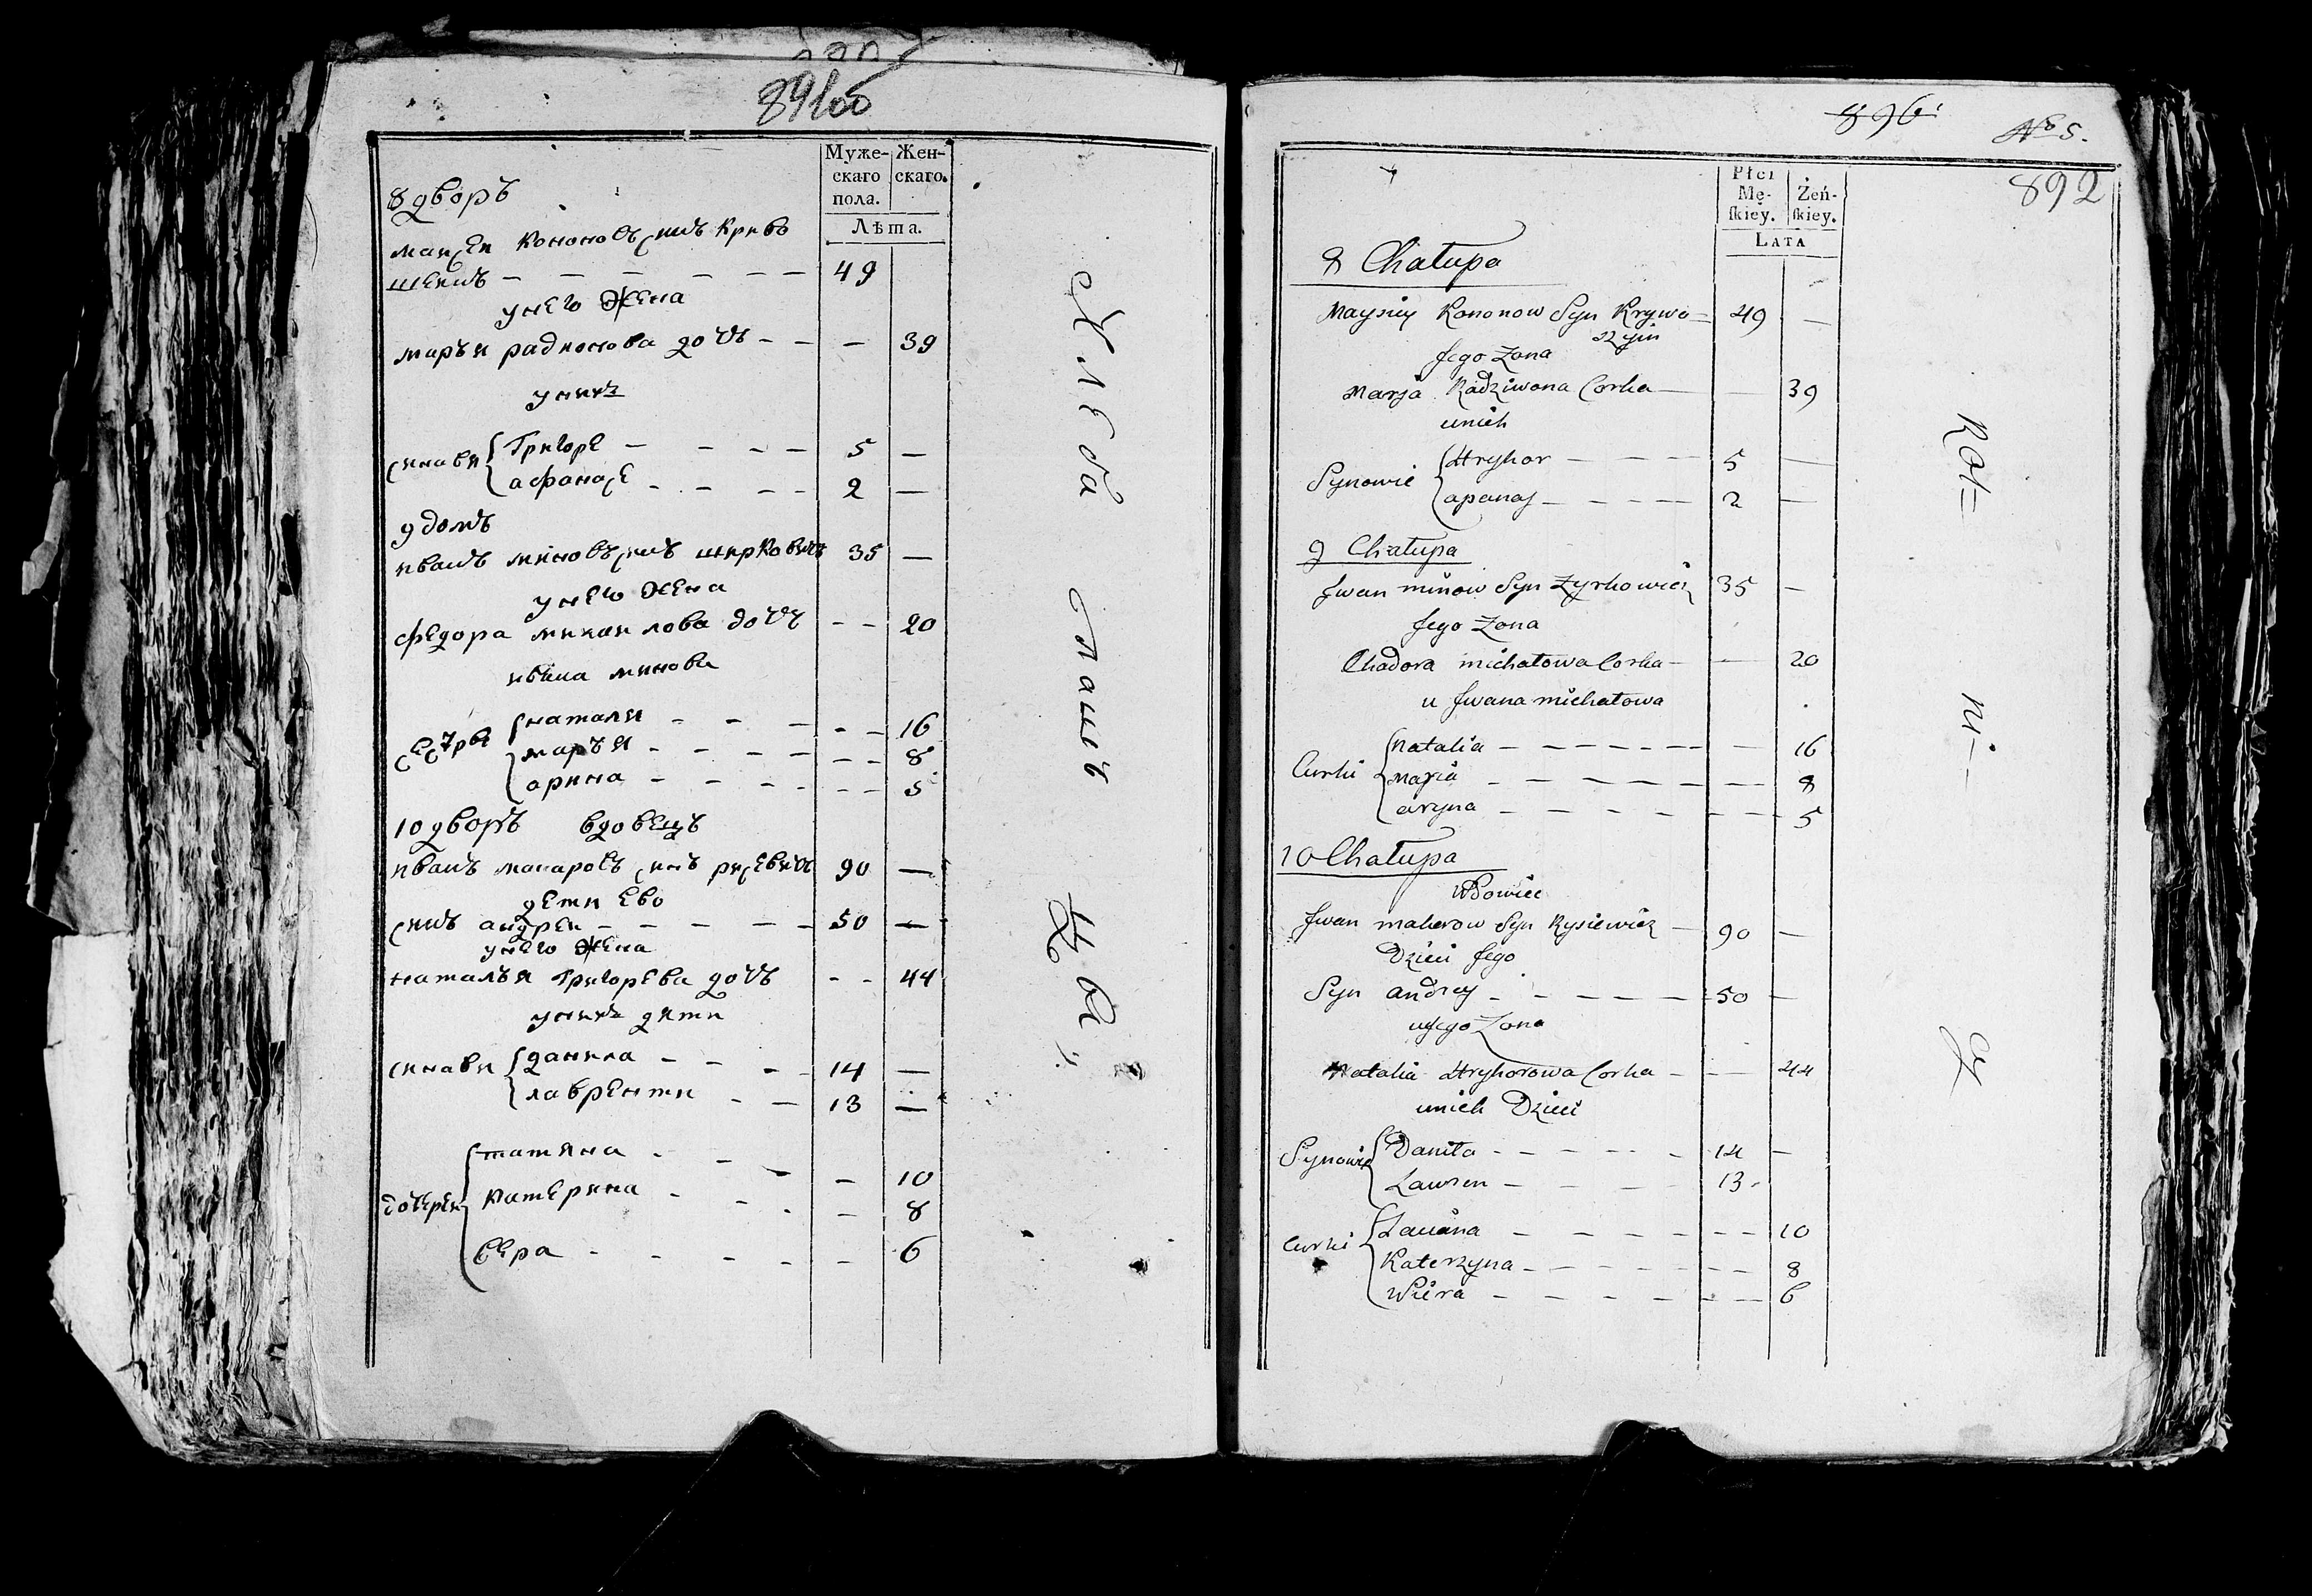 891об
Муже-
скаго
пола.
Жен-
скаго.
Лѣта.
8 дворъ
Маисеи Кононовъ синъ Криво
шеинъ — — — — — — 49
у него жена
маръя радионова дочъ — — — 39
у нихъ
синави Григоре — — — — 5 —
афанасе — — — — 2 —
9 домъ
иванъ миновъ синъ ширковичъ 35 —
у него жена
федора михаилова дочъ — — 20
ивана минова
сестры наталя — — — — — 16
маръя — — — — — — 8
арина — — — — — — 5
10 дворъ вдовецъ
иванъ макаровъ синъ рисевичъ 90 —
дети ево
синъ андреи — — — — — 50 —
у него жена
наталъя Григорева дочъ — — 44
у нихъ дети
синави данила — — — — 14 —
лавренти — — 13 —
дочереи татяна — — — — 10
катерина — — — — 8
вера — — — — — 6
Хлеба
пань
896
№ 5.
892
Płci
Mę-
ſkiey.
Żeń-
ſkiey.
LATA
8 Chałupa
Maysiey Kononow Syn Krywo= 49 —
szyin
Jego Zona
Marja Radziwona Corka — — 39
unich
Synowie Hryhor — — — 5 —
apanas — — — — 2 —
9 Chałupa
Jwan minow Syn Zyrkowicz 35 —
Jego Zona
Chadora michałowa Corka — — 20
u Jwana michałowa
Curki Natalia — — — — — — — 16
Marja — — — — — — — 8
aryna — — — — — — — 5
10 Chałupa
Wdowiec
Jwan makerow Syn Rysiewicz — 90 —
Dzieci Jego
Syn andrey — — — — — 50 —
u Jego Zona
Natalia Hryhorowa Corka — — 44
unich Dzieci
Synowie Daniła — — — — — 14 —
Lawren — — — — 13 —
Curki Taciana — — — — — — 10
Katerzyna — — — — — — — 8
Wiera — — — — — — — 6
Rot=
ni=
cy